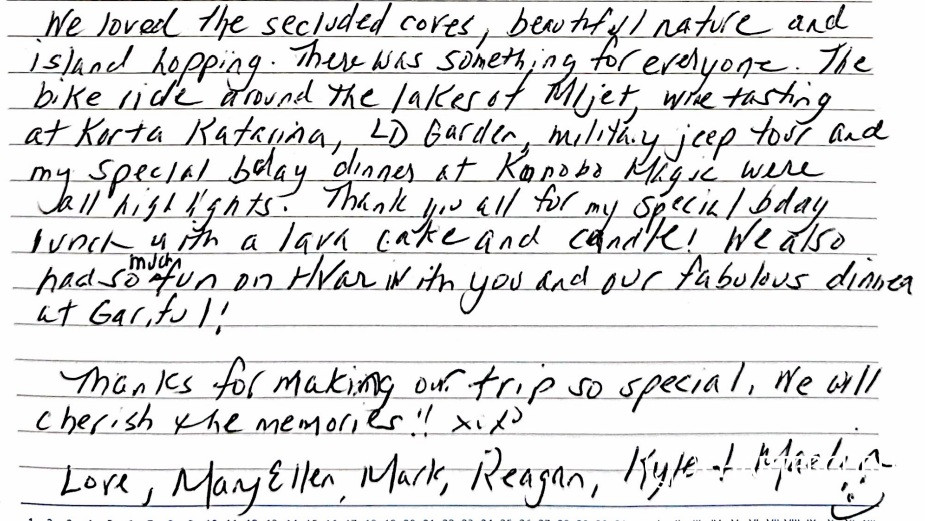 We loved the secluded coves, beautiful nature and
island hopping. There was something for everyone. The
bike ride around the lakes of Mljet, wine tasting
at Korta Katarina, LD Garden, military jeep tour and
my special bday dinner at Konobo Magic were
all highlights. Thank you all for my special bday
lunch with a lava cake and candle! We also
had so much fun on HVar with you and our fabulous dinner
at Gariful!
Thanks for making our trip so special. We will
cherish the memories!!
Love, MaryEllen, Mark, Reagan, Kyle +